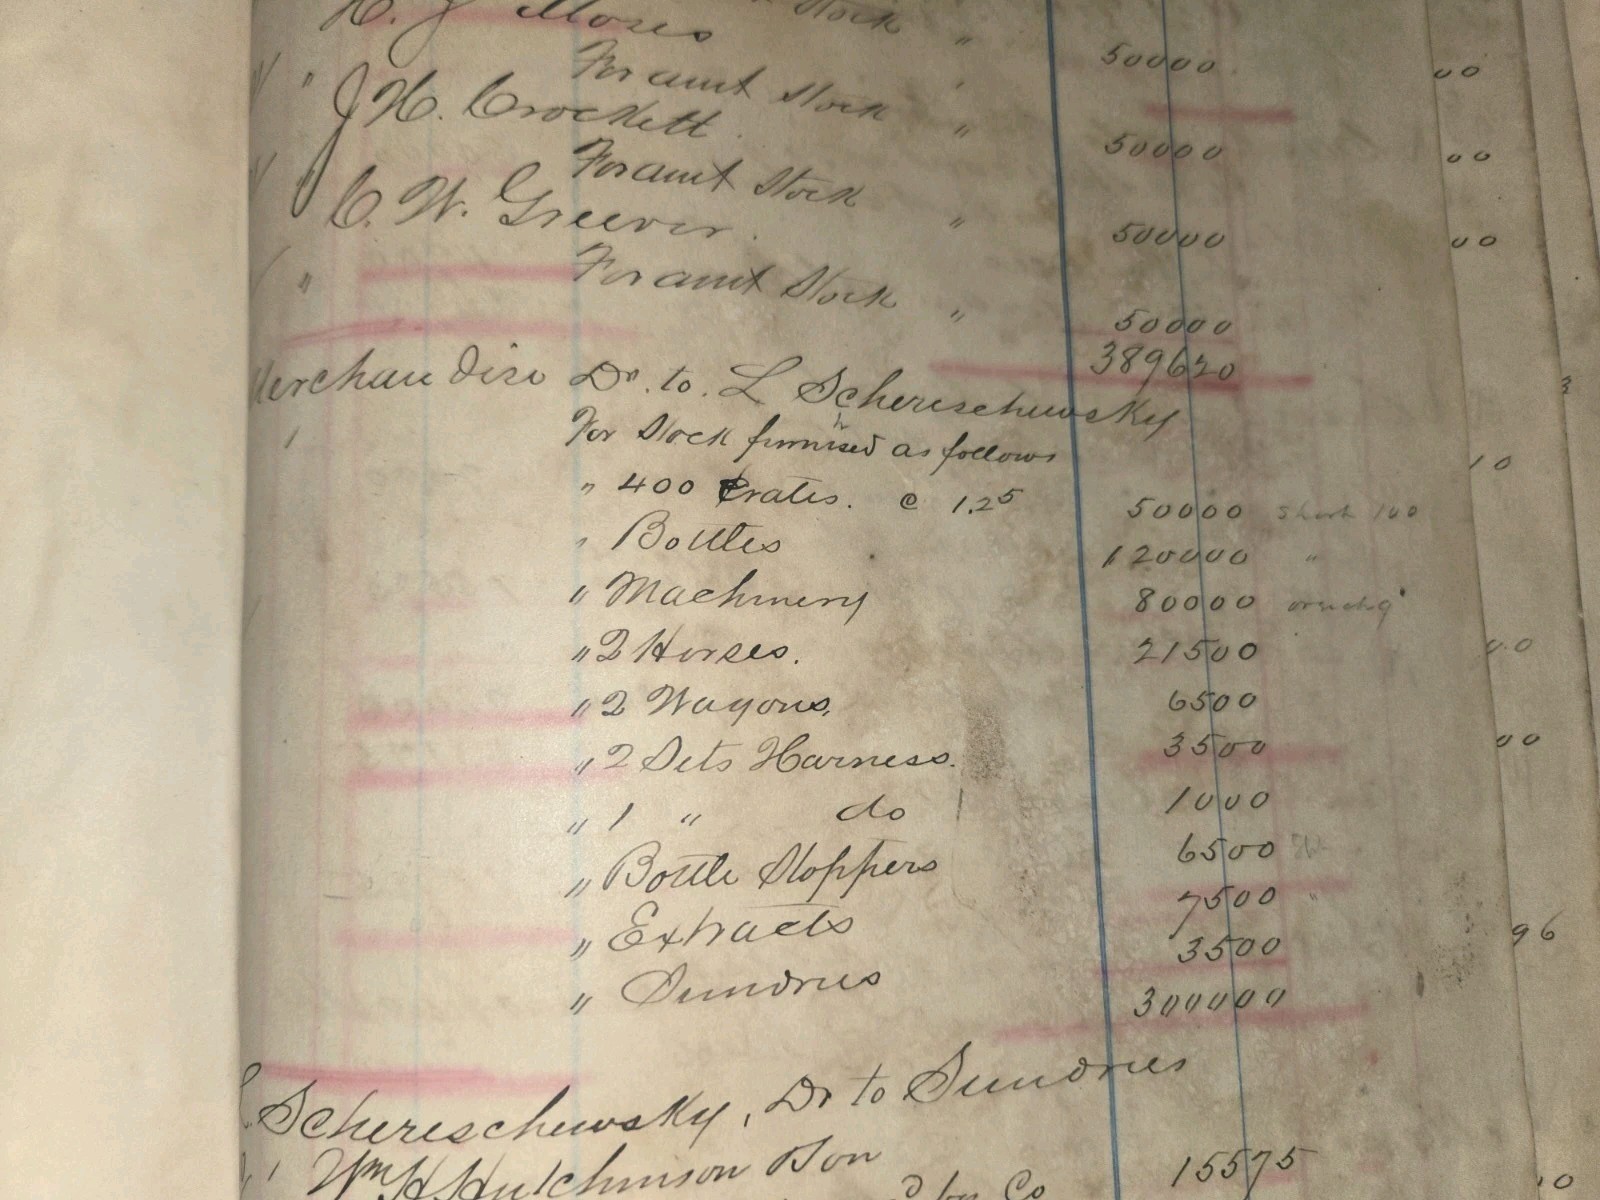 H. J. Moses Stock "
For amt Stock " 50000 00
J H. Crockett.
For amt Stock " 50000 00
C. W. Greever.
For amt Stock " 50000 00
" For amt Stock " 50000
389620
Merchandise Dr. to. L Schereschewsky
For Stock furnished as follows 10
" 400 Crates. @ 1.25 50000 Short 100
" Bottles 120000 "
" Machinery 80000
" 2 Horses. 21500
" 2 Wagons. 6500
" 2 Sets Harness. 3500 00
" 1 " do 1000
" Bottle Stoppers 6500
" Extracts 7500 "
" Sundries 3500 96
300000
L Schereschewsky, Dr to Sundries
" Wm H Hutchinson Son 15575